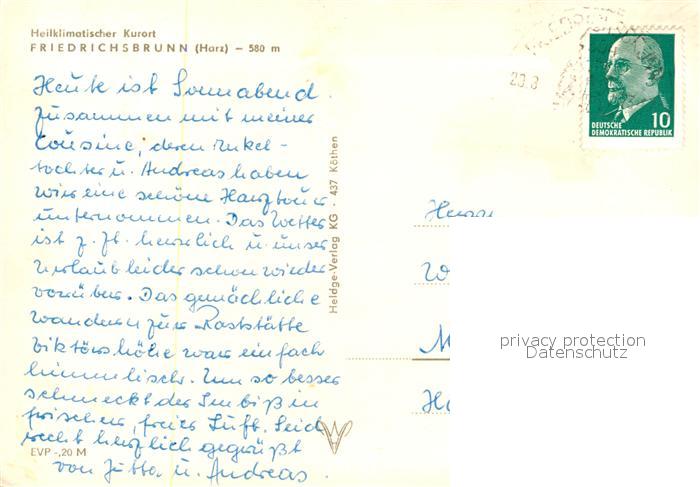 Heilklimatischer Kurort
FRIEDRICHSBRUNN (Harz) – 580 m
Heute ist Sonnabend.
Zusammen mit meiner
Cousine, deren Enkel-
tochter u. Andreas haben
wir eine schöne Harztour
unternommen. Das Wetter
ist z. Zt. herrlich u. unser
Urlaub leider schon wieder
vorüber. Das gemächliche
wandern zur Raststätte
Viktorshöhe war einfach
himmlisch. Um so besser
schmeckt der Imbiß in
frischer, freier Luft. Seid
recht herzlich gegrüßt
von Jutta u. Andreas.
EVP -,20 M
Heldge-Verlag KG · 437 Köthen
20.8
10
DEUTSCHE
DEMOKRATISCHE REPUBLIK
privacy protection
Datenschutz